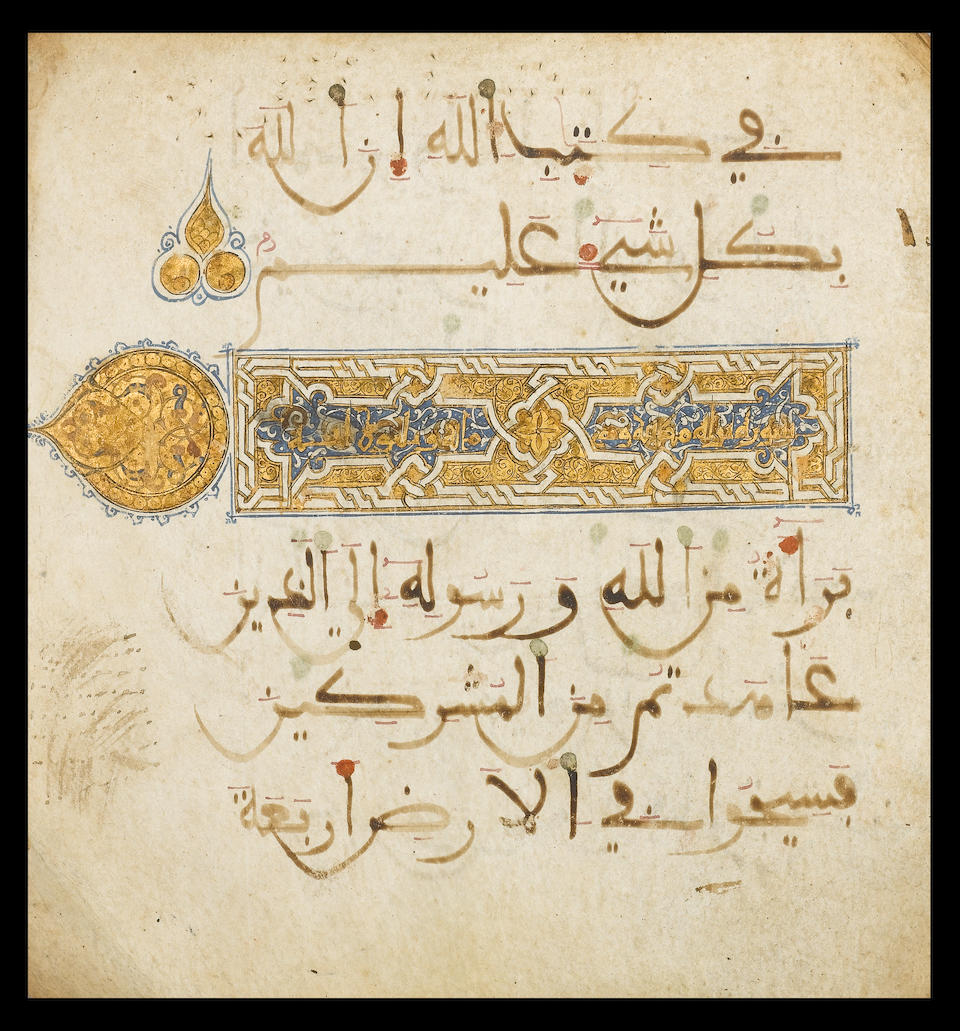 في كتب الله إن الله
بكل شيء عليم
براءة من الله ورسوله إلى الذين
عاهدتم من المشركين
فسيحوا في الأرض أربعة